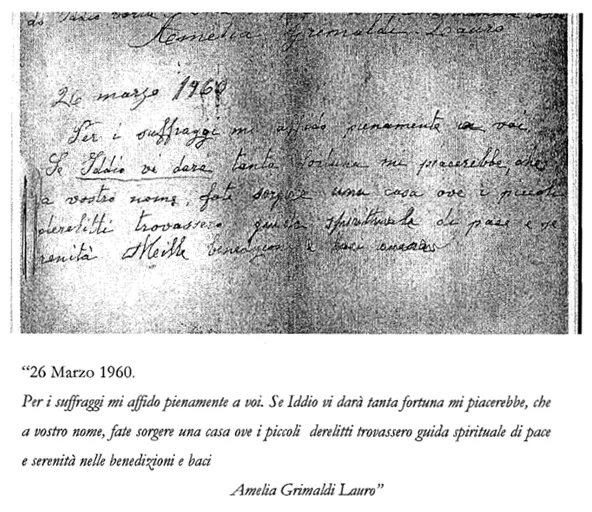 Amelia Grimaldi Lauro
26 marzo 1960
Per i suffraggi mi affido pienamente a voi.
Se Iddio vi darà tanta fortuna mi piacerebbe, che
a vostro nome, fate sorgere una casa ove i piccoli
derelitti trovassero guida spirituale di pace e se
renità Mille benedizioni e baci
“26 Marzo 1960.
Per i suffraggi mi affido pienamente a voi. Se Iddio vi darà tanta fortuna mi piacerebbe, che
a vostro nome, fate sorgere una casa ove i piccoli derelitti trovassero guida spirituale di pace
e serenità nelle benedizioni e baci
Amelia Grimaldi Lauro”